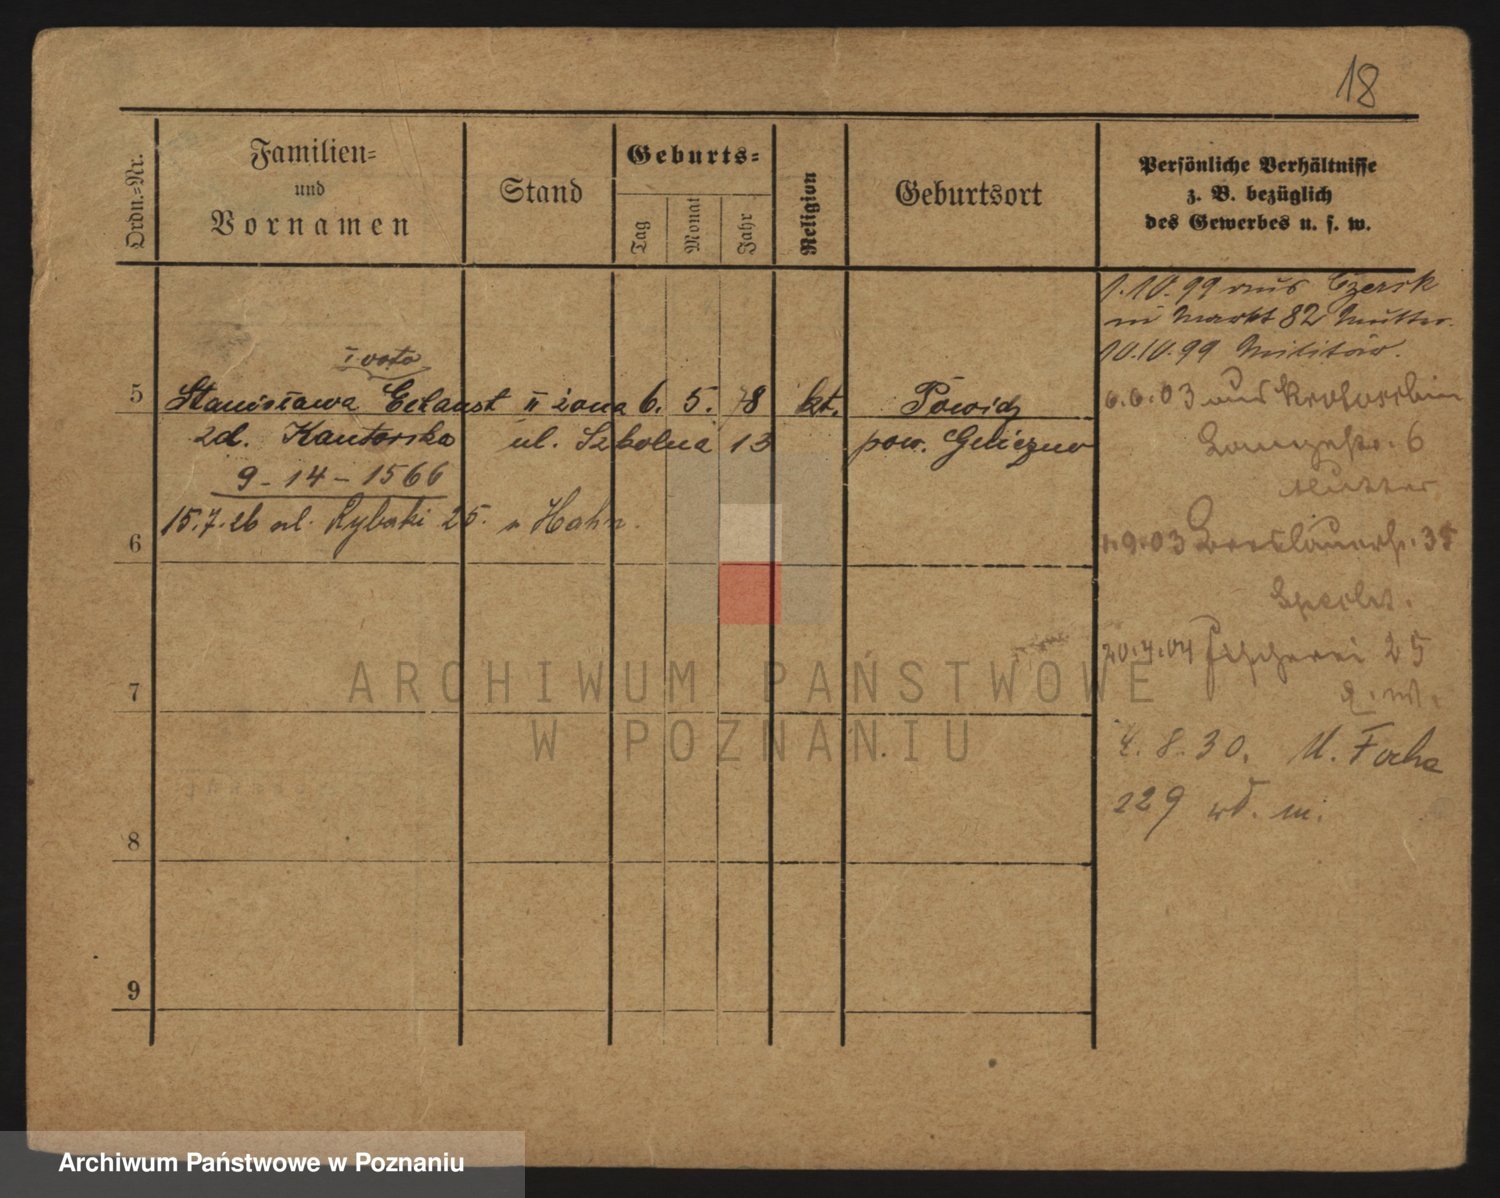 18
Ordn.-Nr.
Familien-
und
Vornamen
Stand
Geburts-
Tag
Monat
Jahr
Religion
Geburtsort
Persönliche Verhältnisse
z. B. bezüglich
des Gewerbes u. s. w.
1.10.99 aus Czersk
Markt 82 Mutter
10.10.99 Militär.
I voto
5 Stanisława II żona 6. 5. 78 kt. Powidz
zd. Kantorska ul. Szkolna 13 pow.
9-14-1566
15.7.26 ul. Rybaki 25. Hahn.
6.6.03 aus Krotoschin
6
Mutter
6
1.9.03 Breslauerstr. 35
Specht.
20.4.04 Fischerei 25
7
4.8.30. M. Focha
229 m.
8
9
ARCHIWUM PAŃSTWOWE
W POZNANIU
Archiwum Państwowe w Poznaniu